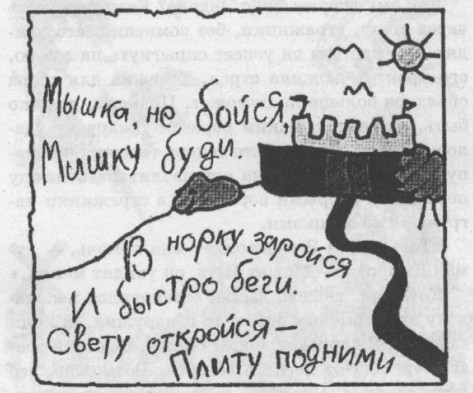 Мышка не бойся,
Мишку буди.
В норку заройся
И быстро беги.
Свету откройся –
Плиту подними